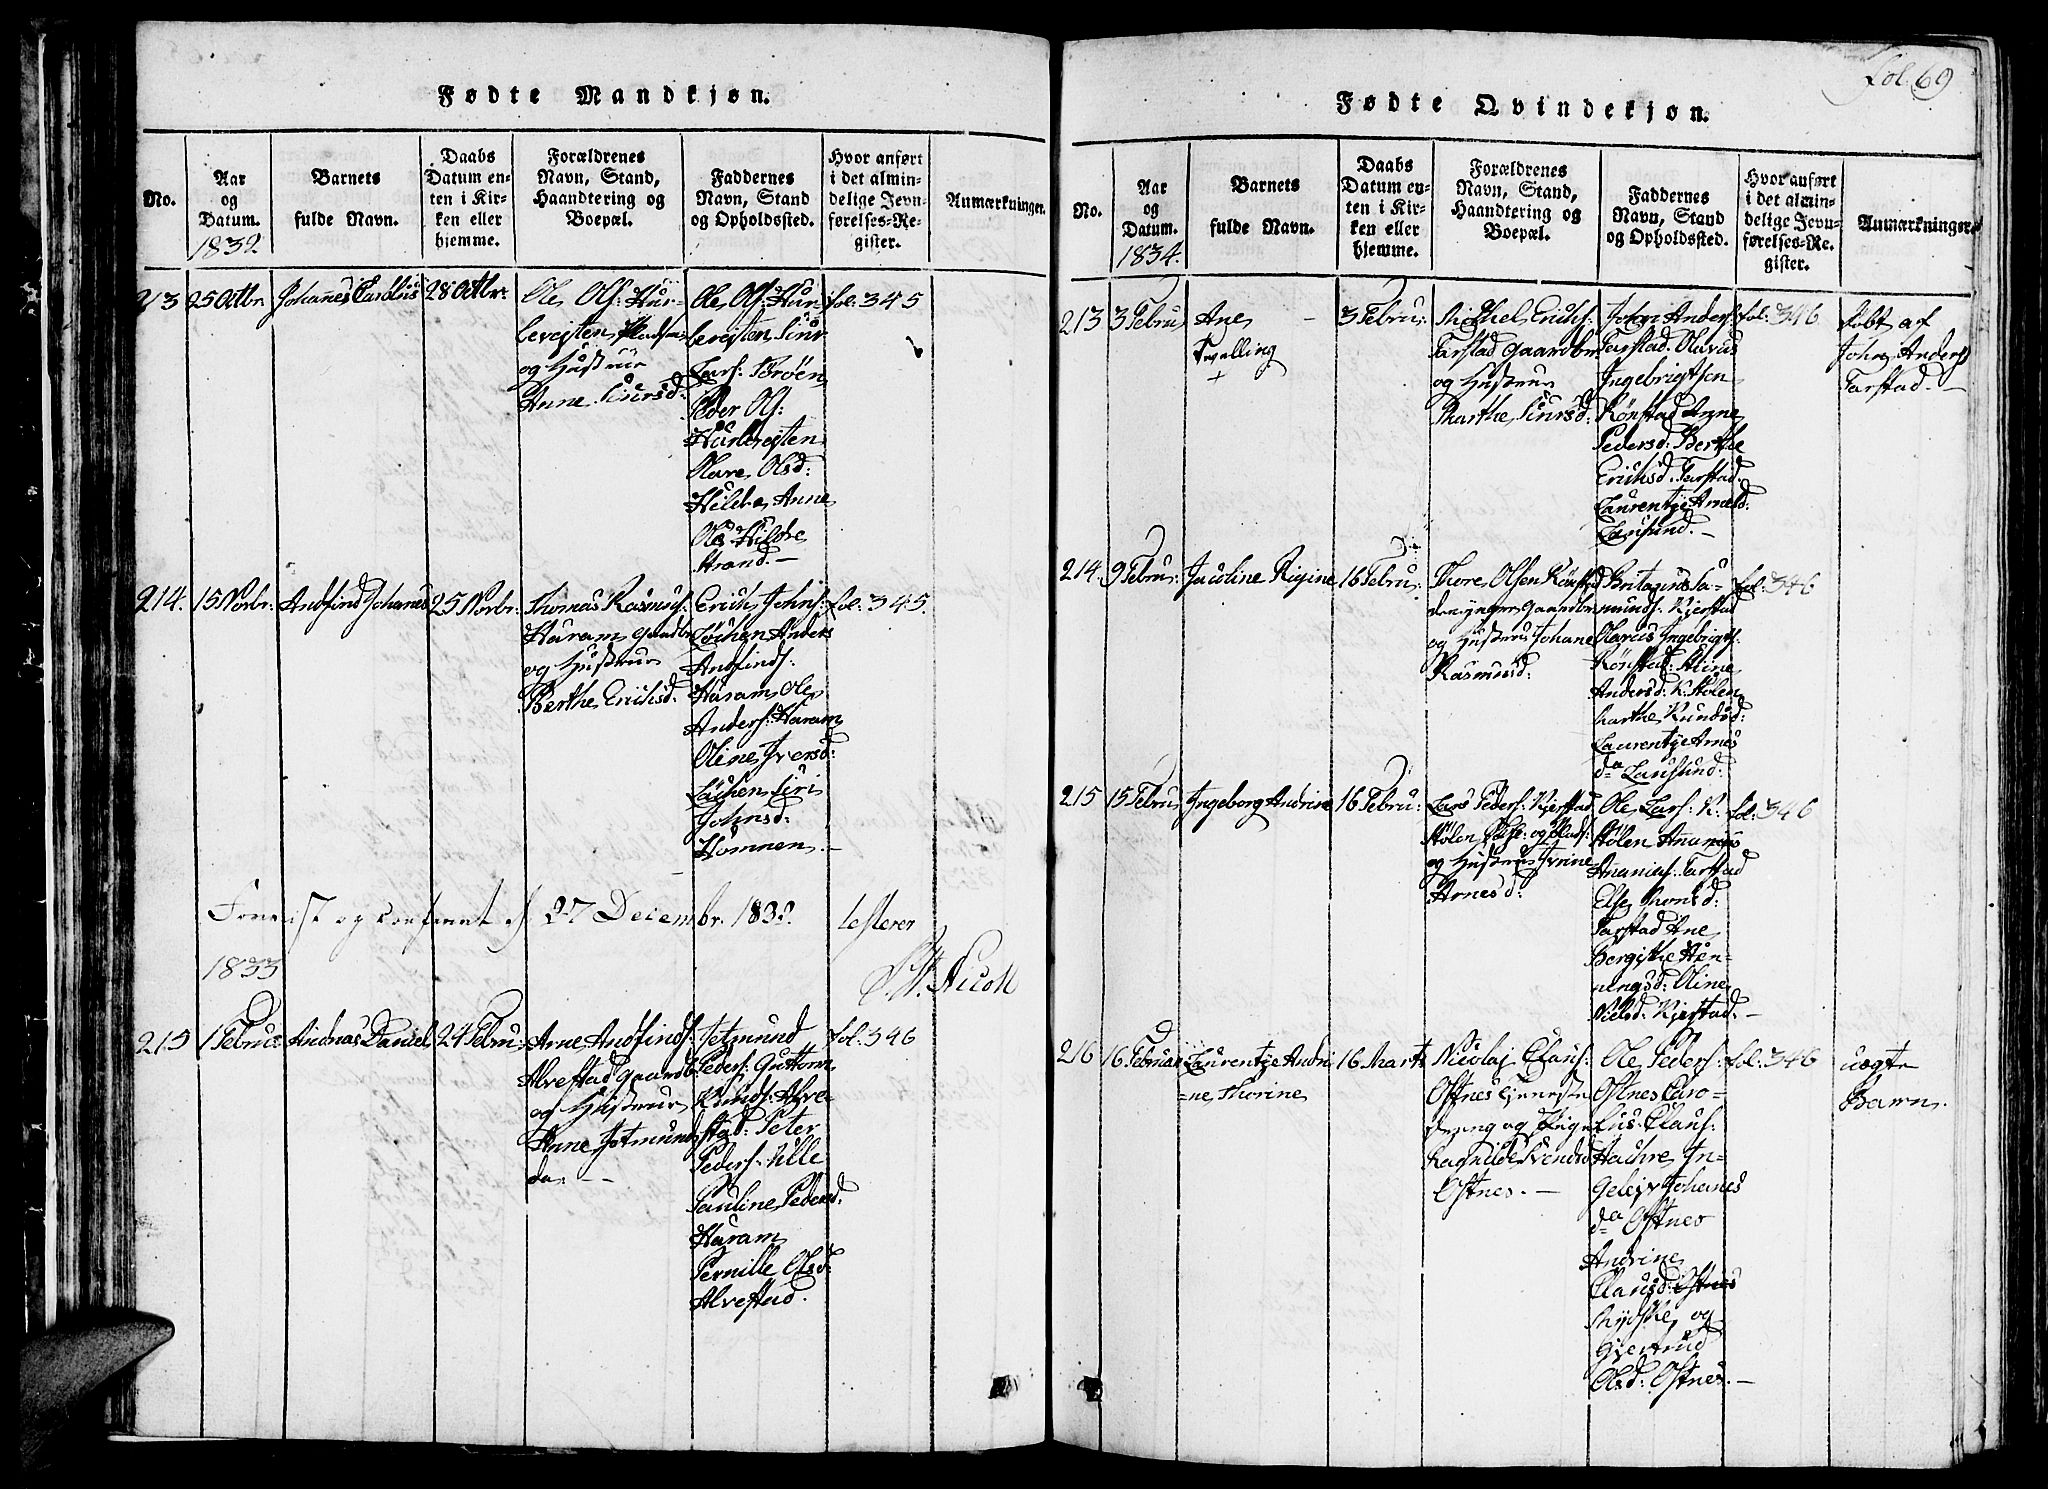 Fødte Mandkjøn.
No.
Aar
og
Datum.
1832
Barnets
fulde Navn.
Daabs
Datum en-
ten i Kir-
ken eller
hjemme.
Forældrenes
Navn, Stand,
Haandtering og
Boepæl.
Faddernes
Navn, Stand
og Opholdssted.
Hvor anført
i det almin-
delige Jevn-
førelses-Re-
gister.
Anmærkninger.
213
25 Octbr
Johannes Carolus
28 Octbr:
Ole Ols: Hur-
levejsten
og Hustrue
Anne Siursd:
Ole Ols: Hur
levejsten Siur
Lars: Brøen
Peder Ols:
Hurlevejsten
Olave Olsd:
Hildre Anne
Ols Hildre
Strand.-
fol: 345
214.
15 Novbr:
Andfind Johannes
25 Novbr:
Thomas Rasmus:
Haram gaardbr
og Hustrue
Berthe Erichsd.
Erich Johns:
Løchen Anders
Andfinds:
Haram Ole
Anders: Haram
Oline Iversd:
Løchen Siri
Johnsd:
Homnen.-
fol: 345.
27 Decembr. 1832.
1833
Nicoll
215
1 Februar
Andreas Daniel
24 Febru:
Arne Andfinds:
Alvestad gaardb:
og Hustrue
Anne Jetmunds
da. --
Jetmund
Peders: Guttorm
Knuds: Alve-
stad: Peter
Peders: Ulle
Pauline Pedersd:
Haram
Pernille Olsd:
Alvestad.
fol: 346
Fol: 69
Fødte Qvindekjøn.
No.
Aar
og
Datum.
1834.
Barnets
fulde Navn.
Daabs
Datum en-
ten i Kir-
ken eller
hjemme.
Forældrenes
Navn, Stand,
Haandtering og
Boepæl.
Faddernes
Navn, Stand
og Opholdssted.
Hvor anført
i det almin-
delige Jevn-
førelses-Re-
gister.
Anmærkninger.
213
3 Febru
Ane
Tvælling
+
3 Febru:
Michel Erichs:
Farstad gaardbr
og Hustrue
Marthe Siursd:
John Anders
Farstad. Olavus
Ingebrigtsen
Rønstad Anne
Pedersd: Berthe
Erichsd. Farstad.
Laurentje Arnesd:
Lausund.-
fol: 346
døbt af
John Anders
Farstad.-
214.
9 Febru:
Jacoline Rigine
16 Febru:
Thore Olsen Rønstad
den yngre gaardbr
og Hustrue Johane
Rasmusd:
Britanus Sa-
munds. Kjerstad
Olavus Ingebrigts:
Rønstad: Stine
Andersd: K. Stølen
Marthe Knudsd:
Laurentje Arnes
da Lausund:
fol: 346
215
15 Febru
Ingeborg Andrine
16 Febru:
Lars Peders: Kjerstad
Stølen
og Hustrue Trine
Arnesd:
Ole Lars: K:
Stølen Ananias
Ananias: Farstad
Else Monsd:
Farstad Ane
Bergithe Hen-
ningsd: Oline
Nielsd. Kjerstad.-
fol: 346
216
16 Februar
Laurentje Andri
=ne Thorine
16 Marts
Nicolaj Claus:
Østnes Tjeneste
dreng og Pige
Ragnilde Svendsd
Østnes.-
Ole Peders:
Østnes Caro-
lus: Claus:
Hachre In-
geleiv Johanes
da Østnes
Andrine
Clausd: Østnes
og
Gjertrud
Olsd: Østnes.-
fol: 346
uægte
Barn.